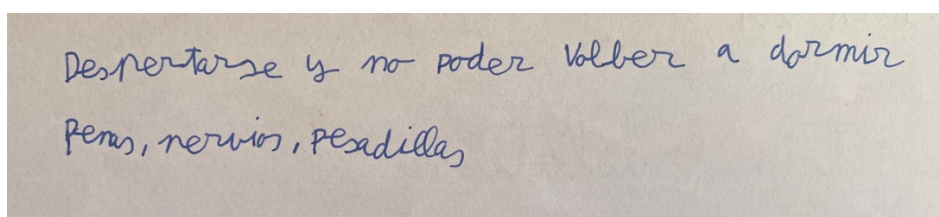 Despertarse y no poder Volber a dormir
Penas, nervios, pesadillas